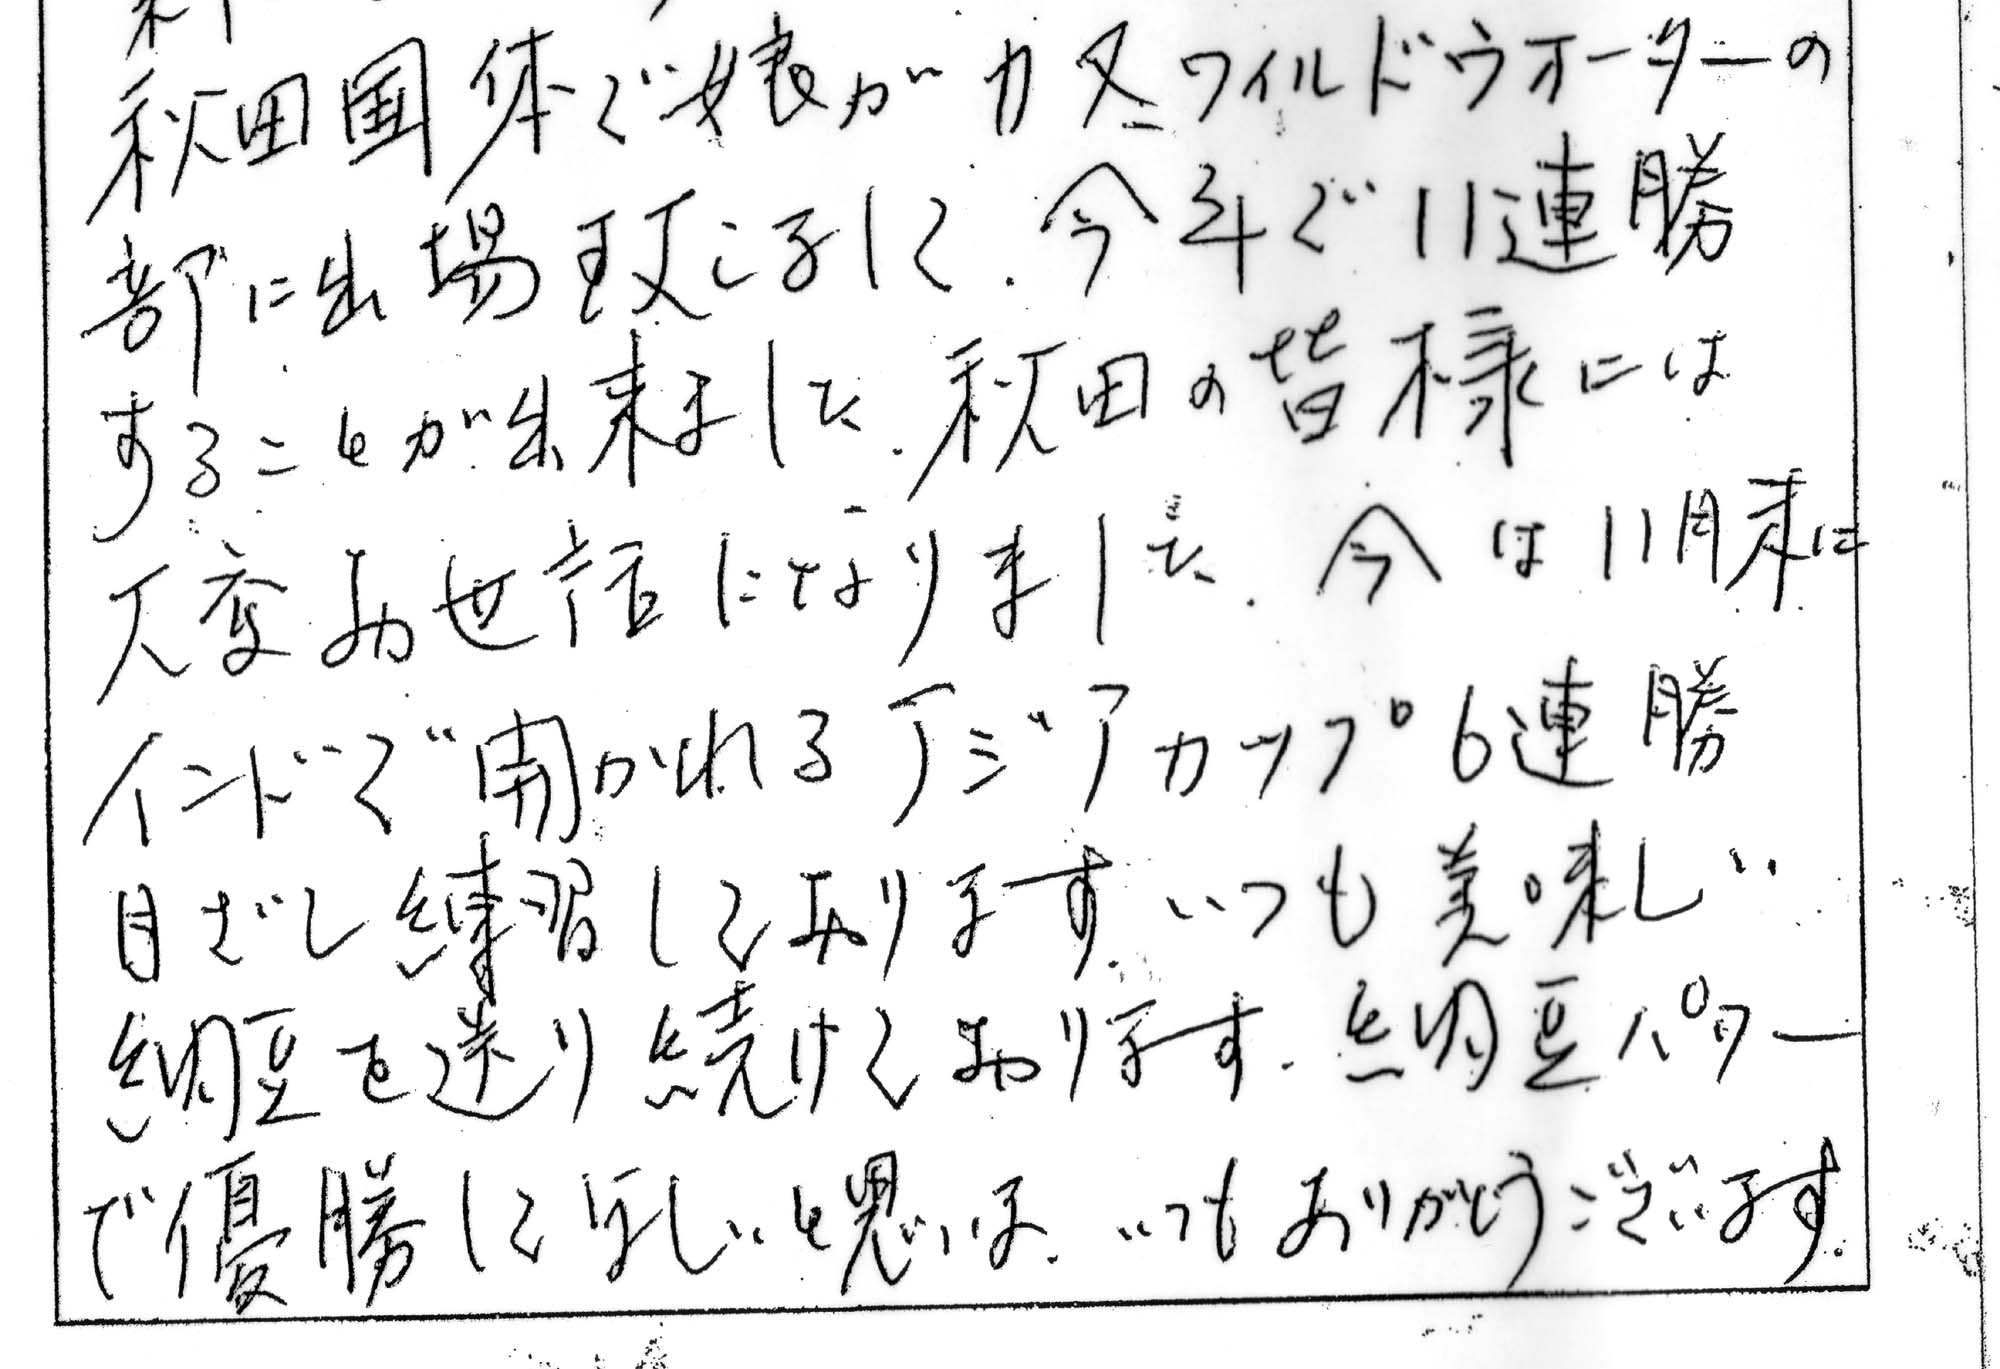 秋田国体で娘がカヌーワイルドウオーターの
部に出場致しまして、今年で11連勝
することが出来ました。秋田の皆様には
大変お世話になりました。今は11月末に
インドで開かれるアジアカップ6連勝
目ざし練習しております。いつも美味しい
納豆を送り続けております。納豆パワー
で優勝して欲しいと思います。いつもありがとうございます。